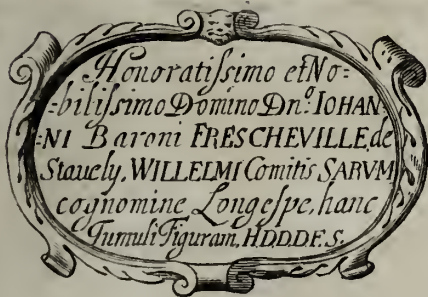 Honoratiſsimo et No=
=biliſsimo Domino Dn.º IOHAN=
=NI Baroni FRESCHEVILLE de
Stauely, WILLELMI Comitis SARVM
cognomine Longeſpe, hanc
Tumuli Figuram, H.D.D.D.F.S.